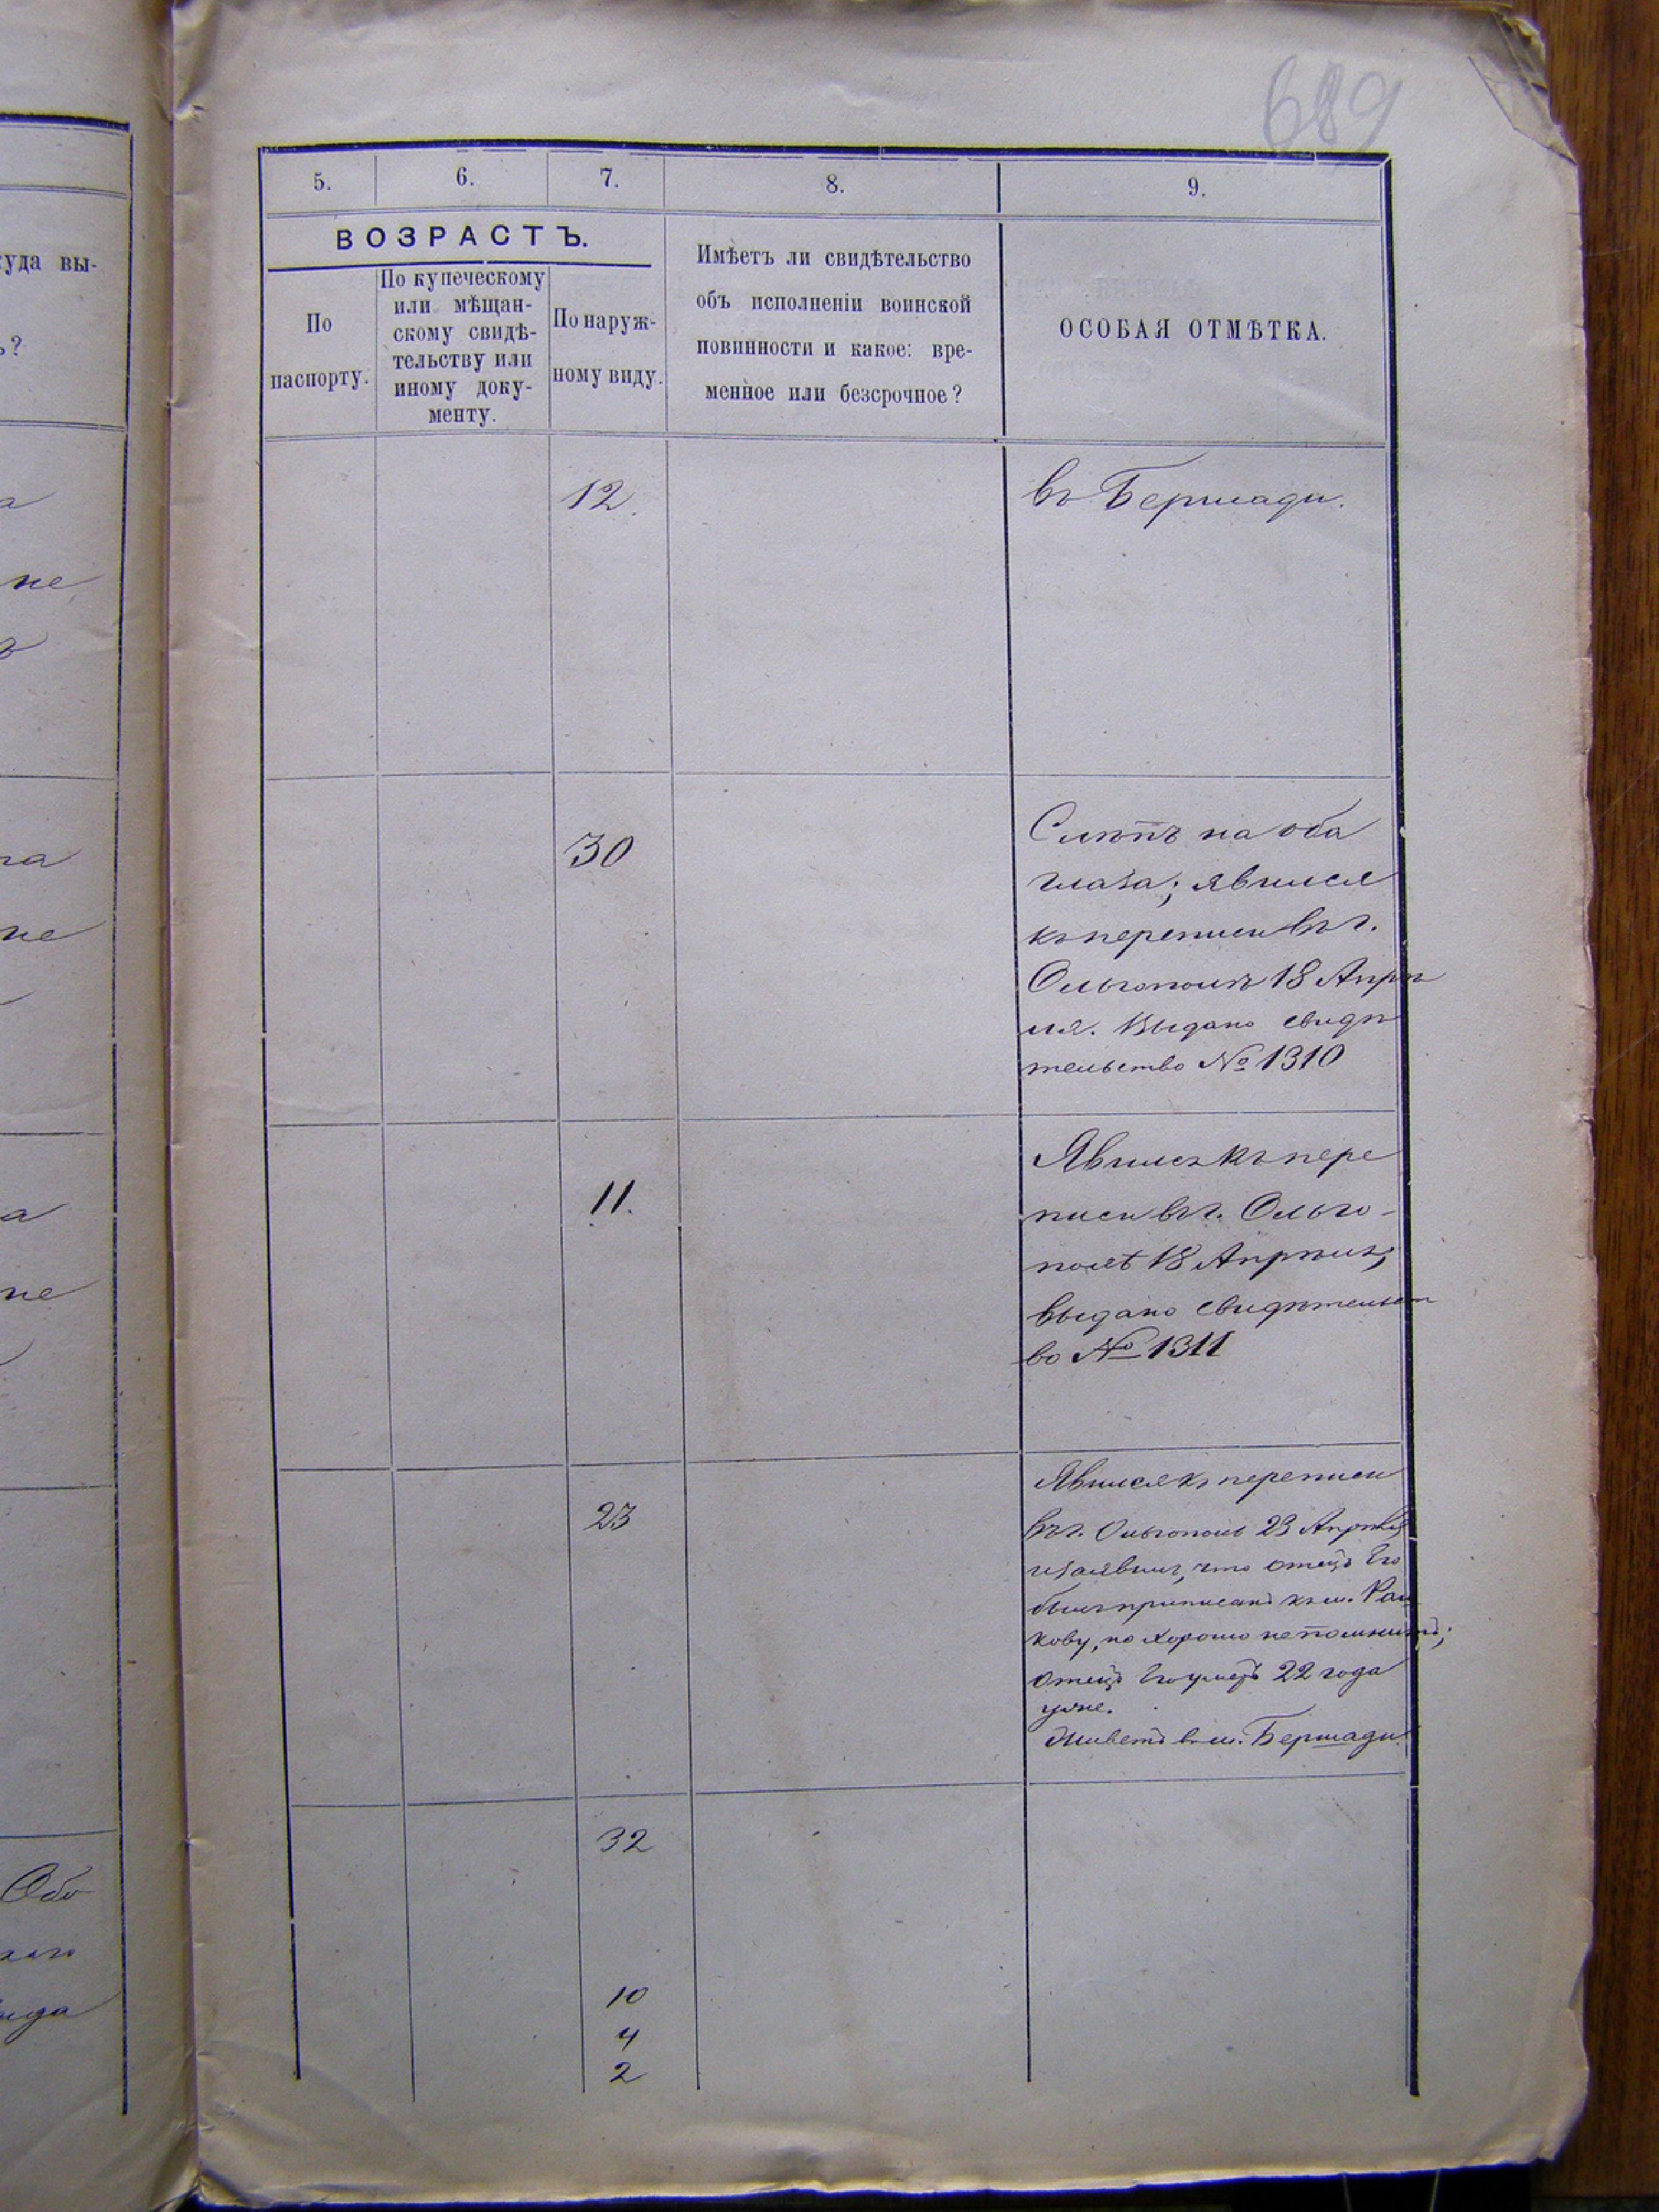 689
5. 6. 7. 8. 9.
ВОЗРАСТЪ.
По
паспорту.
По купеческому
или мѣщан-
скому свидѣ-
тельству или
иному доку-
менту.
По наруж-
ному виду.
Имѣетъ ли свидѣтельство
объ исполненіи воинской
повинности и какое: вре-
менное или безсрочное?
ОСОБАЯ ОТМѢТКА.
куда вы-
ъ?
12.
въ Бершади.
30
Слѣпъ на оба
глаза; явился
къ переписи въ г.
Ольгополѣ 18 Апрѣ
ля. Выдано свидѣ
тельство № 1310
11.
Явились къ пере
писи въ г. Ольго-
полѣ 18 Апрѣля;
выдано свидѣтельст
во № 1311
23
Явился къ переписи
въ г. Ольгополь 23 Апрѣля
и заявилъ, что отецъ Его
былъ приписанъ къ м.
кову, но хорошо не помнитъ;
отецъ Его умеръ 22 года
уже.
Живетъ в м. Бершади.
32
10
4
2
а
не
на
не
а
не
Обо